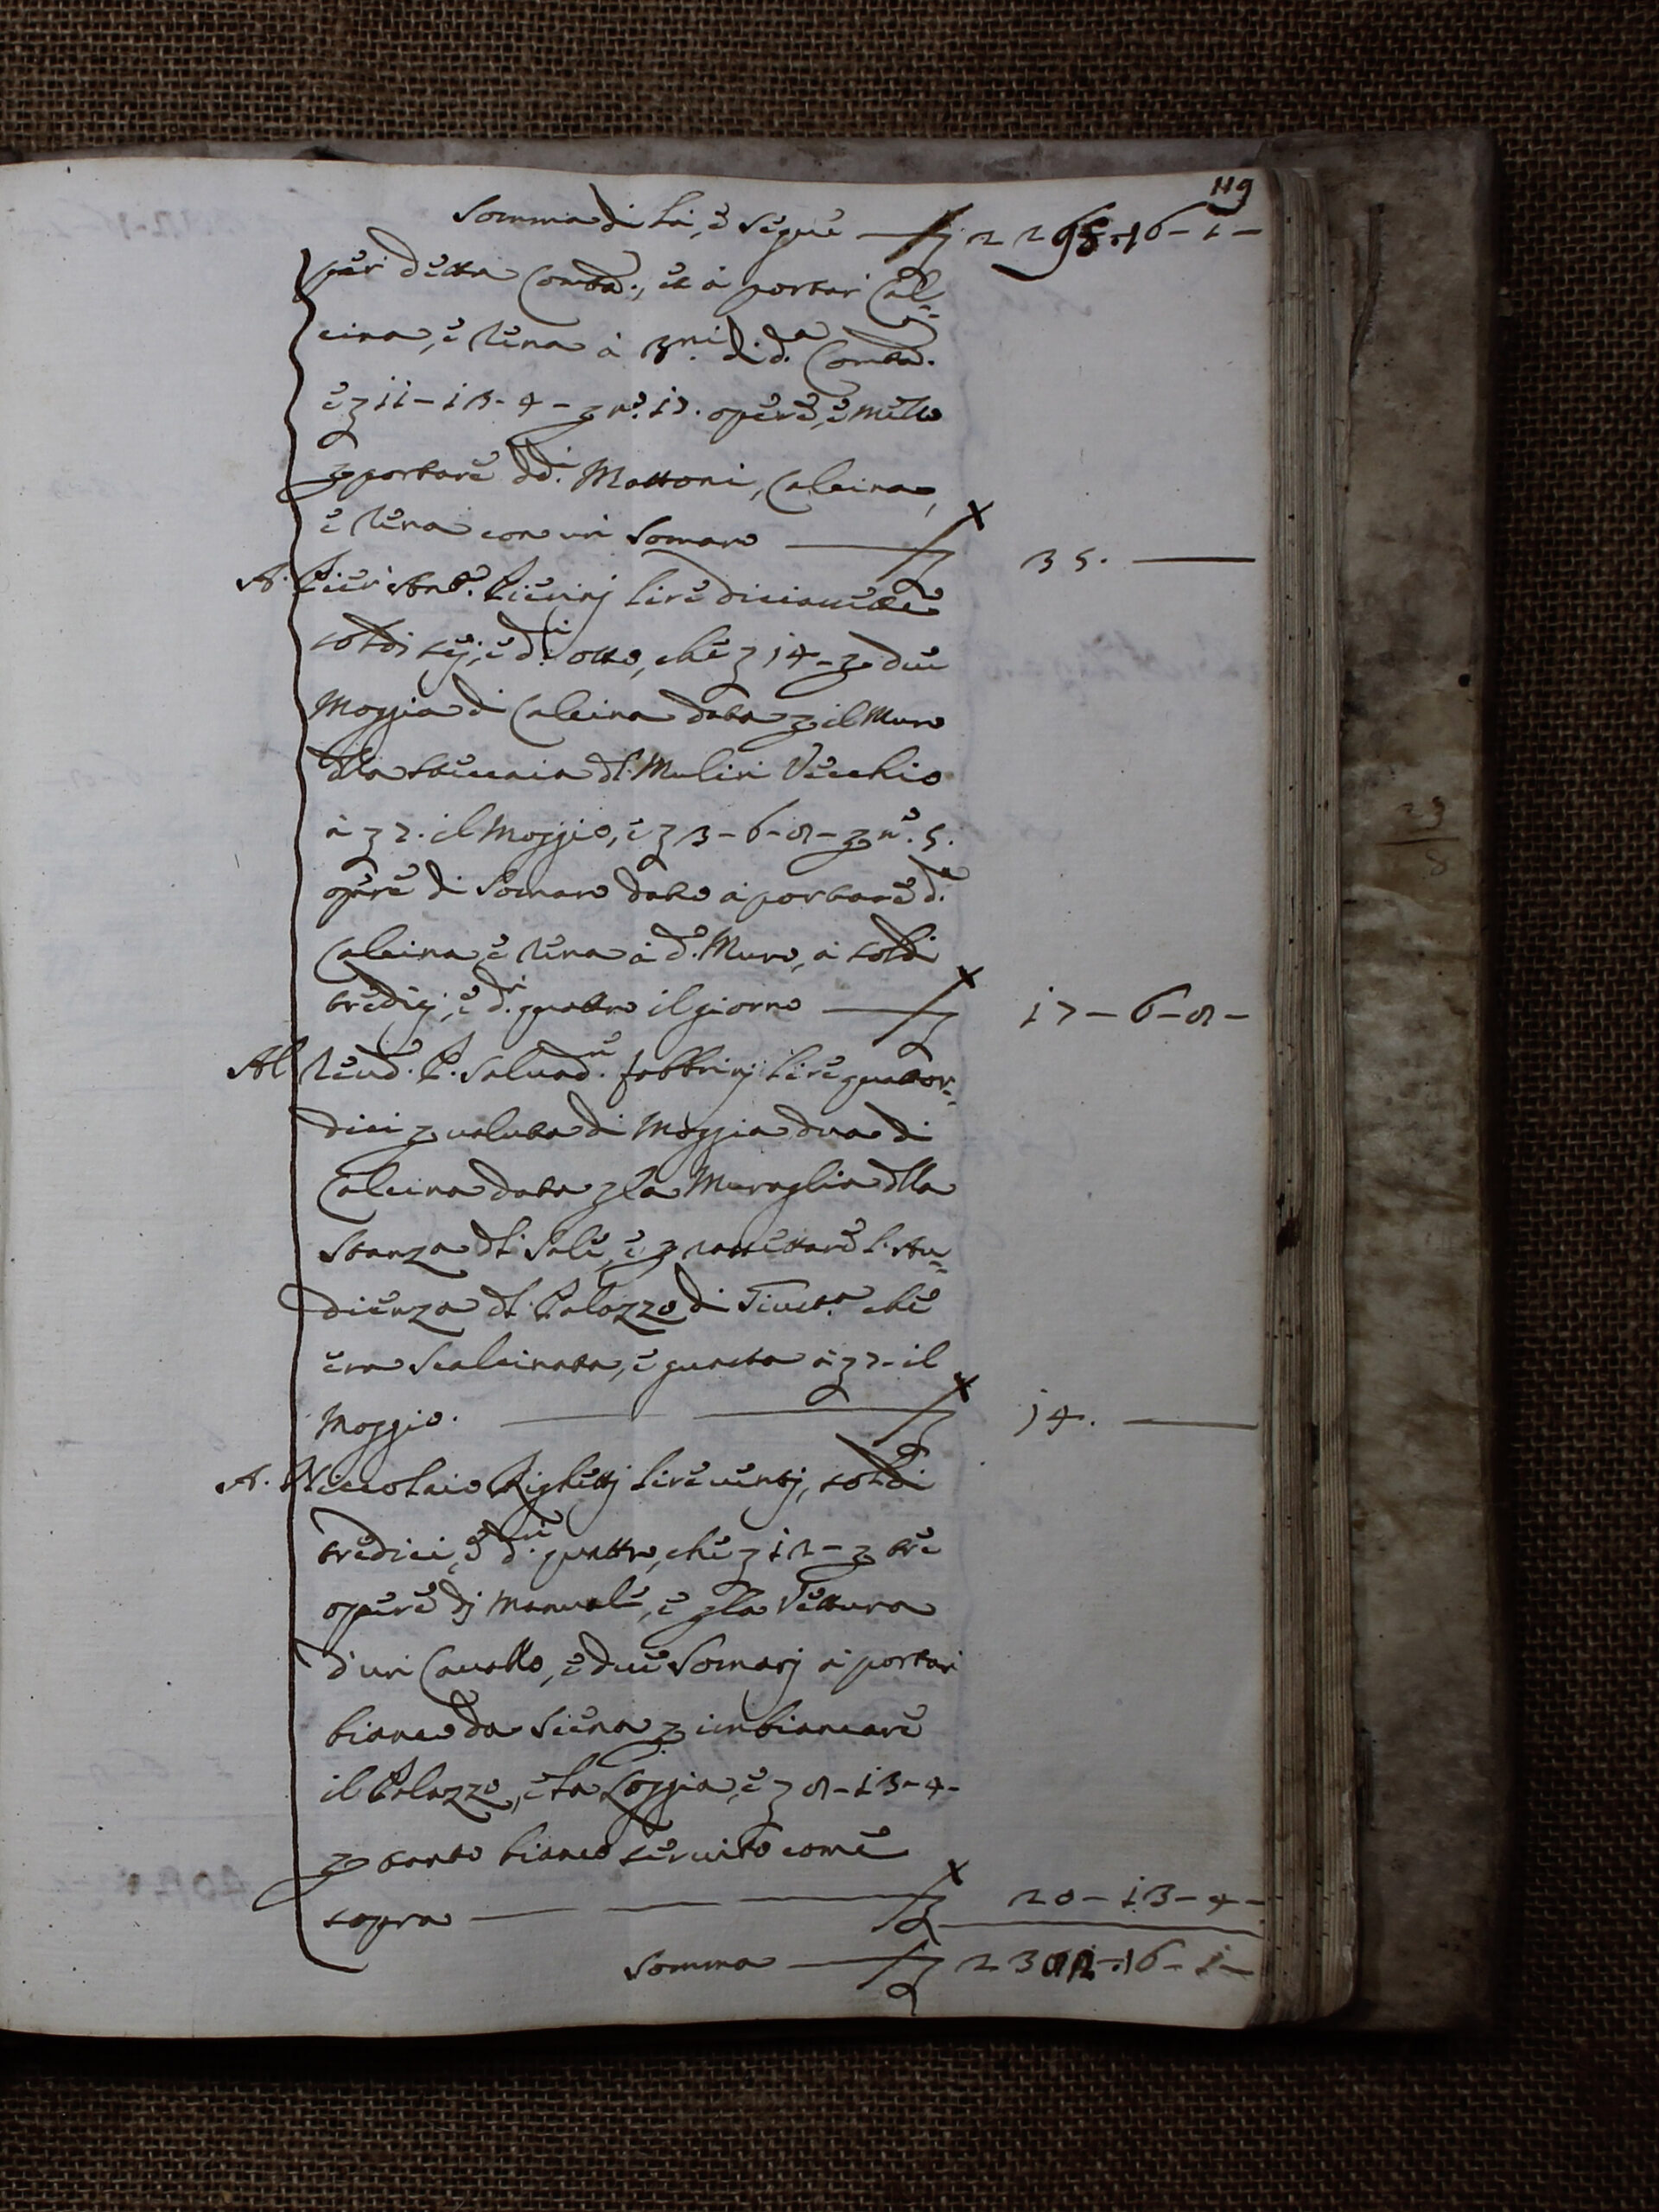 119
Somma di là, è segue ₤ 2295-16-1-
per detta Contad., et à portar Cal=
cina, è Rena à 3.ni di d.a Contad.
è ₤ 11-13-4- p n.o 17. opere, è mezzo
p portare dd.i Mattoni, Calcina,
è Rena con un Somaro ₤ 35.
A. Pier Ant.o Pierinj Lire diciasette
soldi sej, è d.i otto, che ₤ 14- p due
Moggia di Calcina data p il Muro
dlla Steccaia dl. Mulin Vecchio
à ₤ 7. il Moggio, è ₤ 3-6-8- p n.o 5.
opere di Somaro dato à portare d.a
Calcina, è Rena à d.o Muro, à soldi
tredicj, è d.i quattro il giorno ₤ 17-6-8-
Al Reud.o P. Saluad.re fabbrinj Lire quattor=
dici p ualuta di Moggia dua di
Calcina data p la Muraglia dlla
Stanza dl. Sale, è p rassettare l'Au=
dienza dl. Palazzo di Giust.a che
era Scalcinata, è guasta à ₤ 7- il
Moggio. ₤ 14.
A. Niccolaio Righettj Lire uentj, soldi
tredici, è d.ri quattro, che ₤ 12- p tre
opere dj Manuale, è p la Vettura
d'un Cauallo, è due Somarj à portar
bianco da Siena p imbiancare
il Palazzo, è la Loggia, è ₤ 8-13-4-
p tanto bianco seruito come
sopra ₤ 20-13-4-
Somma ₤ 2382-16-1-